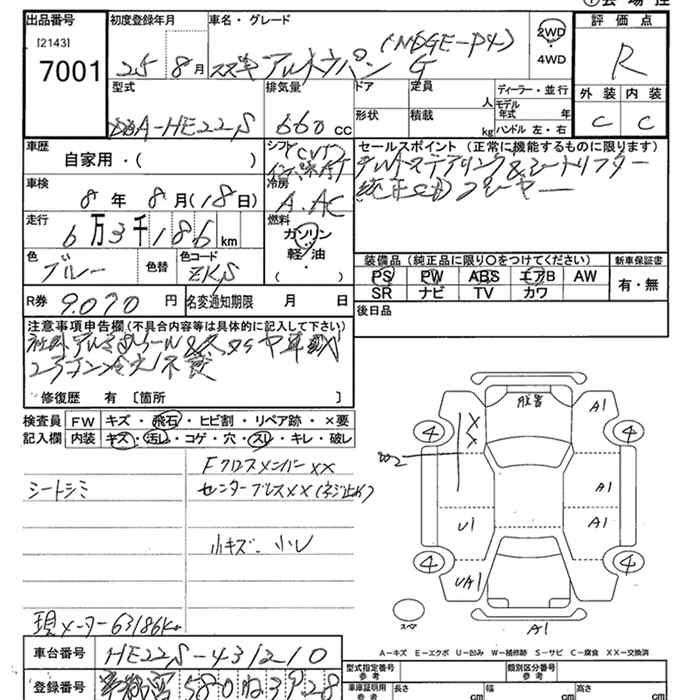 出品番号 初度登録年月 車名・グレード 評価点
[2143]
7001
25 8月 スズキ アルトラパン G
2WD
・
4WD
R
型式 排気量 ドア 定員 人 ディーラー・並行
形状 積載 kg モデル年式 年 ハンドル 左・右
外装 内装
DBA-HE22S 660 cc
C C
車歴 自家用・( )
シフト
セールスポイント (正常に機能するものに限ります)
純正CDプレーヤー
車検 8年 8月(18日)
冷房 A.AC
走行 6万3千186km
燃料 ガソリン・軽油・( )
色 ブルー 色替 色コード ZKS
装備品 (純正品に限り○をつけてください) 新車保証書
PS PW ABS エアB AW 有・無
SR ナビ TV カワ
R券 9.070 円 名変通知期限 月 日
後日品
注意事項申告欄(不具合内容等は具体的に記入して下さい)
修復歴 有 〔箇所 〕
検査員 FW キズ・飛石・ヒビ割・リペア跡・×要
記入欄 内装 キズ・汚レ・コゲ・穴・スレ・キレ・破レ
Fクロスメンバー XX
シートシミ
センターブレス XX (ネジ止め)
小キズ・小U
現メーター 63186km
車台番号 HE22S-431210
登録番号 580 ね 3928
A1
4 4
X
X
W2
A1
U1 A1
4 4
UA1
スペア
A1
A-キズ E-エクボ U-凹み W-補修跡 S-サビ C-腐食 XX-交換済
型式指定番号 参考 類別区分番号 参考
車庫証明用 参考 長さ cm 幅 cm 高さ cm